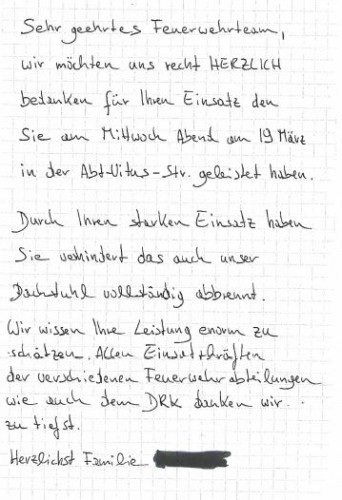 Sehr geehrtes Feuerwehrteam,
wir möchten uns recht HERZLICH
bedanken für Ihren Einsatz den
Sie am Mittwoch Abend am 19 März
in der Abt-Vitus-Str. geleistet haben.
Durch Ihren starken Einsatz haben
Sie verhindert das auch unser
Dachstuhl vollständig abbrennt.
Wir wissen Ihre Leistung enorm zu
schätzen. Allen Einsatzkräften
der verschiedenen Feuerwehrabteilungen
wie auch dem DRK danken wir..
zu tiefst.
Herzlichst Familie